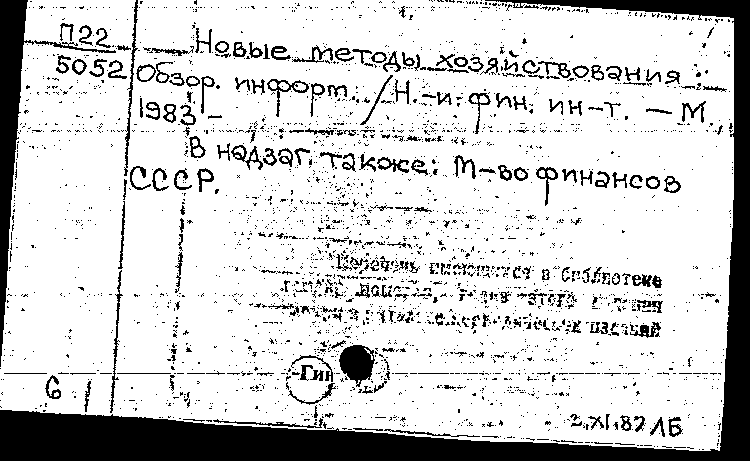 П22
5052
Новые методы хозяйствования :
Обзор. информ. / Н.-и. фин. ин-т. — М.,
1983 –
В надзаг. также: М-во финансов
СССР.
имеющихся в библиотеке
изданий
Гин
6
2.XI.82 ЛБ